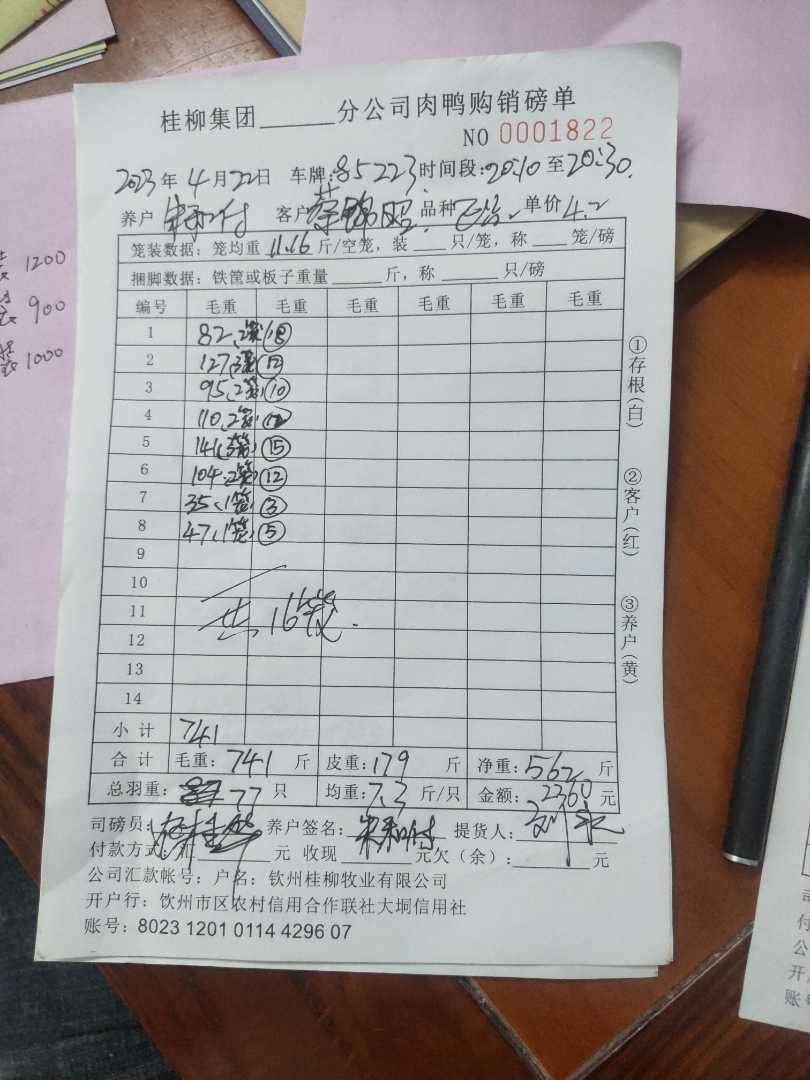 桂柳集团______分公司肉鸭购销磅单
NO 0001822
2023年 4月22日 车牌:85223 时间段:20:10至20:30
养户 客户 蔡锦昭 品种 单价 4.2
笼装数据: 笼均重 11.16 斤/空笼, 装 ___ 只/笼, 称 ___ 笼/磅
捆脚数据: 铁筐或板子重量 ______ 斤, 称 ______ 只/磅
编号 毛重 毛重 毛重 毛重 毛重 毛重
1 82, 2笼
2 127, 3笼 ⑫
3 95, 2笼 ⑩
4 110, 2笼 ⑫
5 141, 3笼 ⑮
6 104, 2笼 ⑫
7 35, 1笼 ③
8 47, 1笼 ⑤
9
10
11
12
13
14
共16笼.
小计 741
合计 毛重: 741 斤 皮重: 179 斤 净重: 562 斤
总羽重: 77 只 均重: 7.3 斤/只 金额: 2360 元
司磅员: 养户签名: 提货人:
付款方式: 汇______元 收现______元欠(余):______元
公司汇款帐号: 户名: 钦州桂柳牧业有限公司
开户行: 钦州市区农村信用合作联社大垌信用社
账号: 8023 1201 0114 4296 07
①存根(白)
②客户(红)
③养户(黄)
1200
900
1000